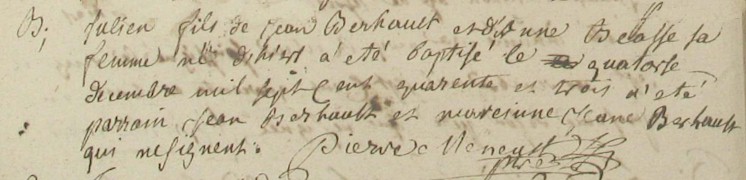 B; Julien fils de Jean Berhault et d'Anne Becasse sa
femme né d'hier a eté baptisé le quatorse
decembre mil sept Cent quarente et trois a eté
parrain Jean Berhault et mareinne Jeane Berhault
qui ne signent. Pierre Meneust ptre